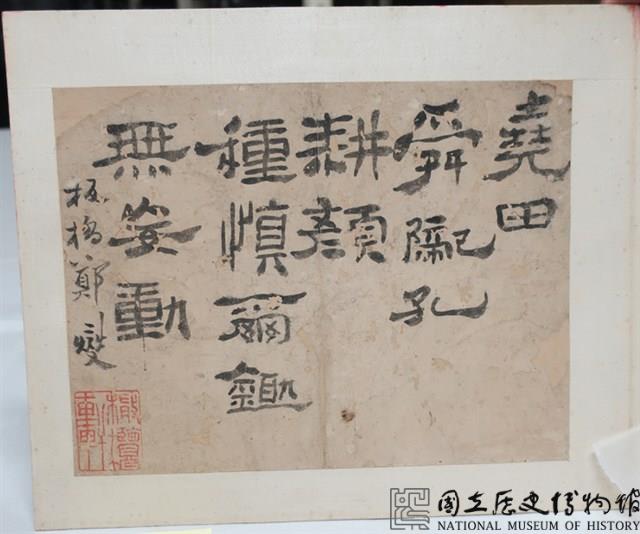 堯田
舜孔
耕顏
種慎爾
無妄動
板橋鄭燮
國立歷史博物館
NATIONAL MUSEUM OF HISTORY